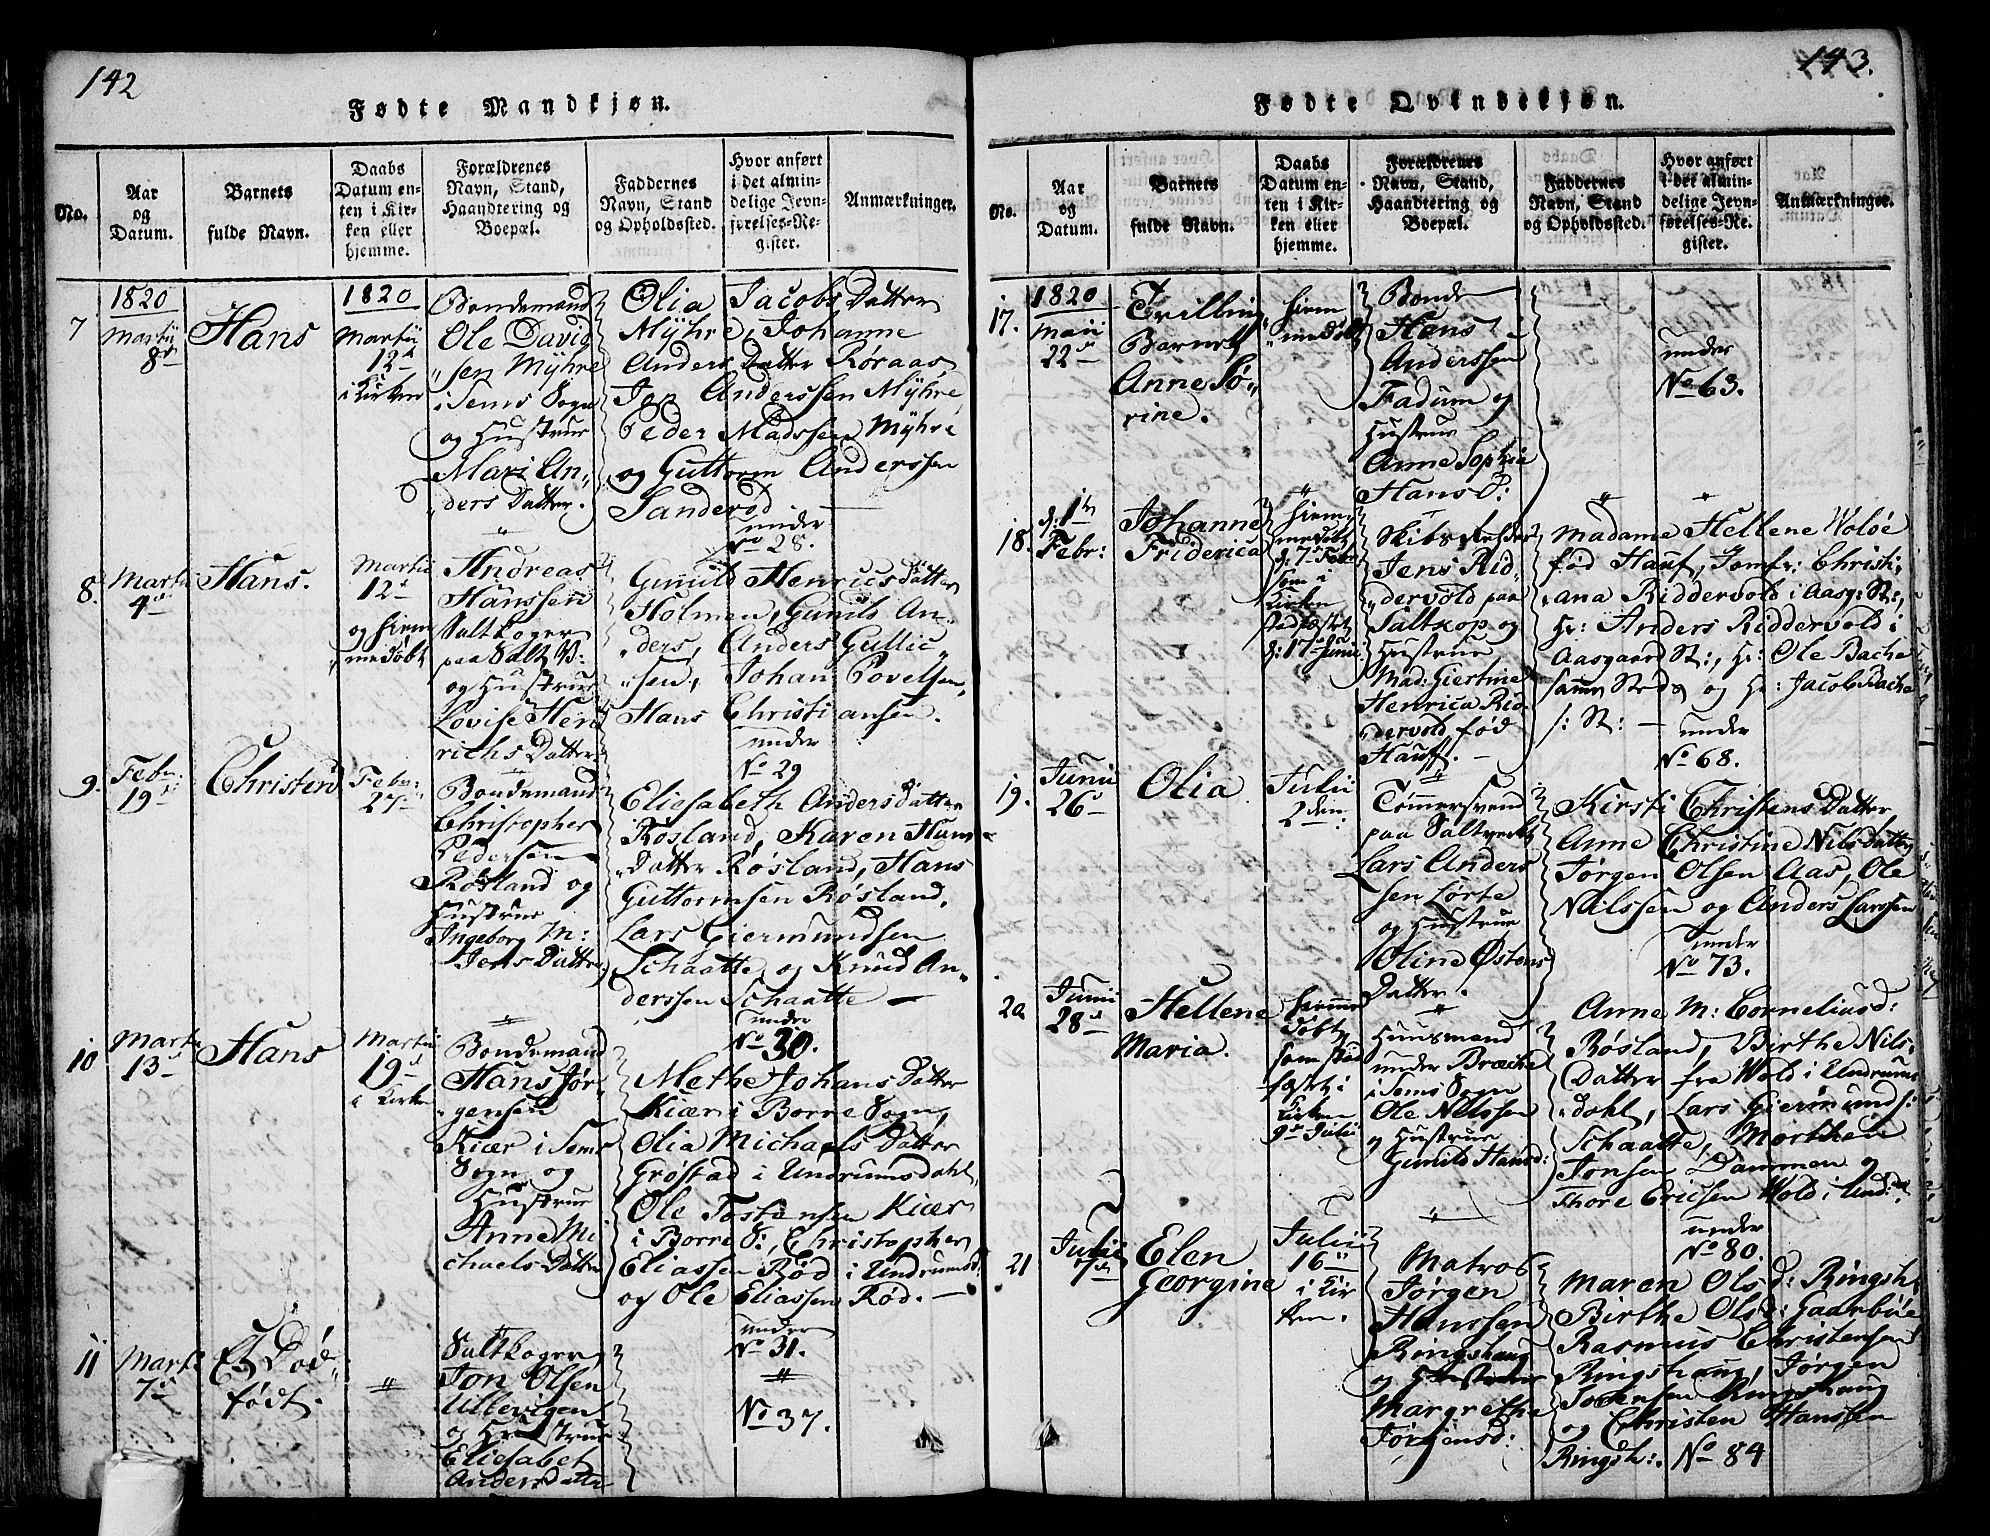 142
Fødte Mandkjøn.
No.
Aar
og
Datum.
Barnets
fulde Navn.
Daabs
Datum en-
ten i Kir-
ken eller
hjemme.
Forældrenes
Navn, Stand,
Haandtering og
Boepæl.
Faddernes
Navn, Stand
og Opholdssted.
Hvor anført
i det almin-
delige Jevn-
førelses-Re-
gister.
Anmærkninger.
7
1820
Martii
8de
Hans
1820
Martii
12te
i Kirken
Bondemand
Ole David
"sen Myhre
i Sems Sogn
og Hustrue
Mari An„
ders Datter.
Olia Jacobs Datter
Myhre, Johanne
Anders Datter Røraas,
Anderssen Myhre,
Peder Madssen Myhre
og Guttorm Anderssen
Sanderød
under
No 28.
8.
Martii
4de
Hans.
Martii
12te
og hiem
medøbt
Andreas
Hanssen
Saltkoger
paa Salt V:
og Hustrue
Lovise Hen
richs Datter
Gunild Henrics Datter
Holmen, Gunild An„
ders, Anders Gullic„
"sen, Johan Povelsen,
Hans Christiansen.
under
No 29
9.
Febr:
19de
Christen
Febr:
27de
Bondemand
Christopher
Pedersen
Røsland og
Hustrue
Ingeborg M:
Jens Datter
Eliesabeth Anders Datter
Røsland, Karen
Datter Røsland, Hans
Guttormsen Røsland,
Lars Giermundsen
Schaatte og Knud An„
derssen Schaatte —
under
No 30.
10
Martii
13de
Hans
Martii
19de
i Kirken
Bondemand
Hans Jør„
"gensen
Kiær i Sems
Sogn og
Hustrue
Anne Mi
chaels Datter
Methe Johans Datter
Kiær i Borre Sogn,
Olia Michaels Datter
Grøstad i Undrumsdahl,
Ole Tostensen Kiær
i Borre S:, Christopher
Eliassen Rød i Undrumsd:
og Ole Eliassen Rød. —
under
No 31.
11
Martii
7de
Et Død„
født.
"
Saltkoger
Jon Olsen
Ullevigen
og Hustrue
Eliesabet
Anders Datter
"
No 37.
143.
Fødte Qvindekjøn.
No.
Aar
og
Datum.
Barnets
fulde Navn.
Daabs
Datum en-
ten i Kir-
ken eller
hjemme.
Forældrenes
Navn, Stand,
Haandtering og
Boepæl.
Faddernes
Navn, Stand
og Opholdssted.
Hvor anført
i det almin-
delige Jevn-
førelses-Re-
gister.
Anmærkninger.
17.
1820
Maii
22de
Trilling
Barnet
Anne Sø„
rine.
hiem
"medøbt
Bonde
Hans
Anderssen
Fadum og
Hustrue
Anne Sophie
Hans D:
under
No 63.
18.
d: 1te
Febr:
Johanne
Friderica
hiem„
medøbt
d: 7de Febr
som i
Kirken
stadfæstet
d: 17de Junii
Skibsrheder
Jens Rid„
"dervold paa
Saltkop og
Hustrue
Mad: Giertine
Henrica Rid„
"dervold, fød
Hauf. —
Madame Hellene Woløe
fød Hauf, Jomfr: Christi„
"ana Riddervold i Aasg: St:,
Hr: Anders Riddervold i
Aasgaard St:, Hr: Ole Bache
samme Steds og Hr: Jacob Bache
i: St: —
under
No 68.
19.
Junii
26de
Olia
Julii
2den
Tømmersvend
paa Saltverket
Lars Anders
sen Lørte
og Hustrue
Oline Østens
Datter.
Kirsti Christens Datter
Anne Christine Nils Datter
Jørgen Olsen Aas, Ole
Nilssen og Anders Larssen
under
No 73.
20
Junii
28de
Hellene
Maria.
hiemme
døbt
som stad
fæstet i
Kirken
9de Julii
Huusmand
under Bræche
i Sems Sogn
Ole Nilssen
og Hustrue
Gunild Hansd:
Anne M: Corneliusd:
Røsland, Birthe Nils„
Datter fra Wold i Undrums
"dahl, Lars Giermunds:
Schaatte, Morthen
Jonsen Dammen og
Thore Ericsen Wold i Und:
under
No 80.
21
Julii
7de
Elen
Georgine
Julii
16de
i Kir
ken.
Matros
Jørgen
Hanssen
Ringshaug
og Hustrue
Margrethe
Jørgensd:
Maren Olsd: Ringsh:
Birthe Olsd: Gaarboe
Rasmus Christensen
Ringshaug, Jørgen
Ringshaug
og Christen Hanssen
Ringsh:. No 84